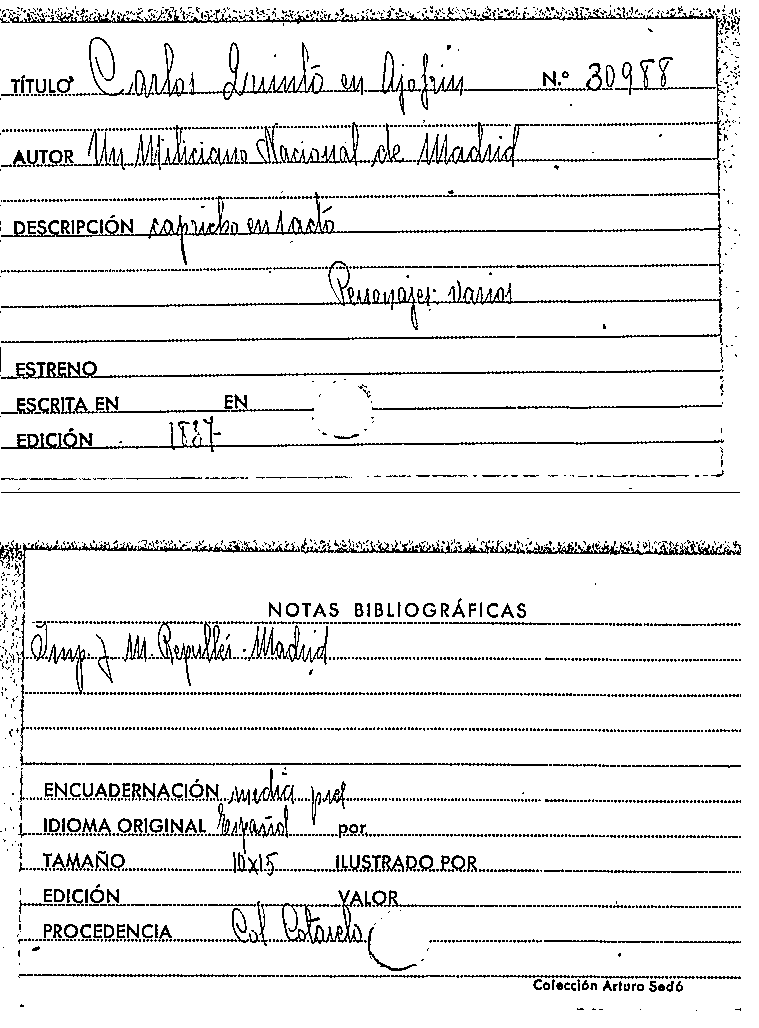 TÍTULO Carlos Quinto en Ajofrín N.º 30988
AUTOR Un Miliciano Nacional de Madrid
DESCRIPCIÓN capricho en 1 acto
Personajes: Varios
ESTRENO
ESCRITA EN EN
EDICIÓN 1837
NOTAS BIBLIOGRÁFICAS
Imp. J. M. Repullés - Madrid
ENCUADERNACIÓN media piel
IDIOMA ORIGINAL Español por
TAMAÑO 10x15 ILUSTRADO POR
EDICIÓN VALOR
PROCEDENCIA Col Cotarelo
Colección Arturo Sedó